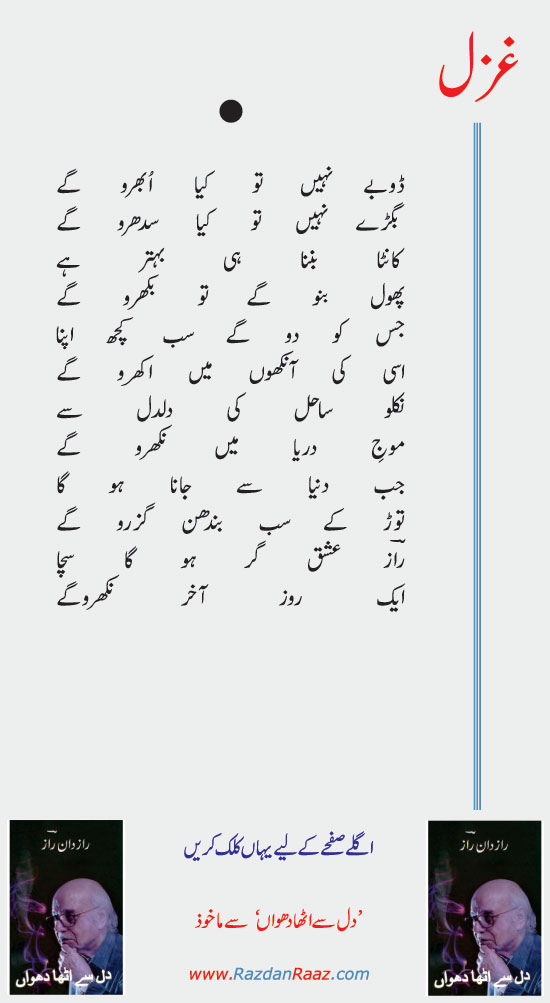 غزل
ڈوبے نہیں تو کیا اُبھرو گے
بگڑے نہیں تو کیا سدھرو گے
کانٹا بننا ہی بہتر ہے
پھول بنو گے تو بکھرو گے
جس کو دو گے سب کچھ اپنا
اسی کی آنکھوں میں اکھرو گے
نکلو ساحل کی دلدل سے
موجِ دریا میں نکھرو گے
جب دنیا سے جانا ہو گا
توڑ کے سب بندھن گزرو گے
رازؔ عشق گر ہو گا سچا
ایک روز آخر نکھروگے
رازدان رازؔ
دل سے اٹھا دھواں
اگلے صفحے کے لیے یہاں کلک کریں
’دل سے اٹھا دھواں‘ سے ماخوذ
www.RazdanRaaz.com
رازدان رازؔ
دل سے اٹھا دھواں